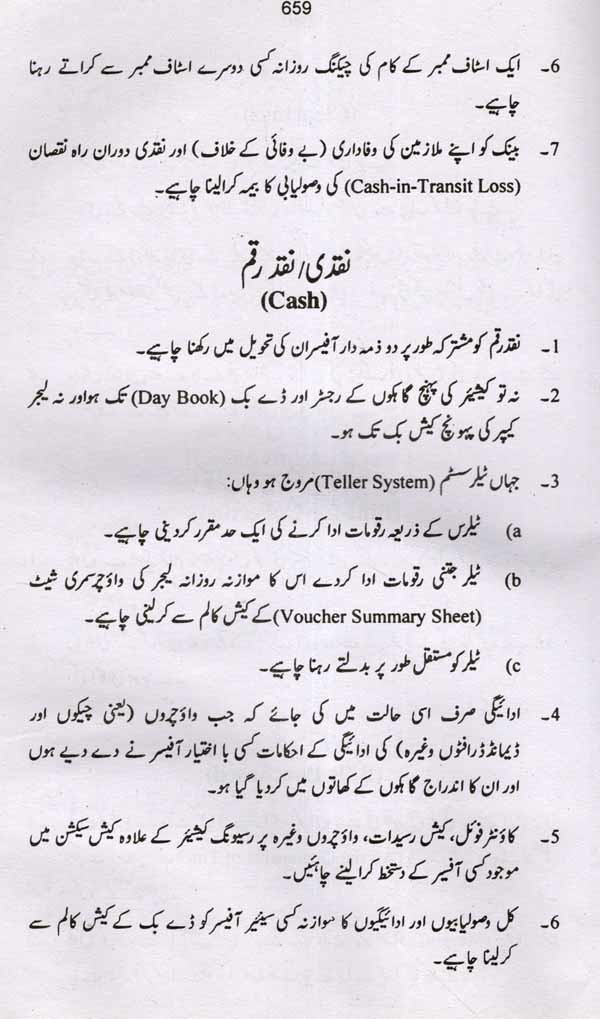 659
6۔ ایک اسٹاف ممبر کے کام کی چیکنگ روزانہ کسی دوسرے اسٹاف ممبر سے کراتے رہنا
چاہیے۔
7۔ بینک کو اپنے ملازمین کی وفاداری (بے وفائی کے خلاف) اور نقدی دوران راہ نقصان
(Cash-in-Transit Loss) کی وصولیابی کا بیمہ کرالینا چاہیے۔
نقدی/نقد رقم
(Cash)
1۔ نقد رقم کو مشترکہ طور پر دو ذمہ دار آفیسران کی تحویل میں رکھنا چاہیے۔
2۔ نہ تو کیشیئر کی پہنچ گاہکوں کے رجسٹر اور ڈے بک (Day Book) تک ہو اور نہ لیجر
کیپر کی پہونچ کیش بک تک ہو۔
3۔ جہاں ٹیلر سسٹم (Teller System) مروج ہو وہاں:
(a ٹیلرس کے ذریعہ رقومات ادا کرنے کی ایک حد مقرر کردینی چاہیے۔
(b ٹیلر جتنی رقومات ادا کردے اس کا موازنہ روزانہ لیجر کی واؤچر سمری شیٹ
(Voucher Summary Sheet) کے کیش کالم سے کرلینی چاہیے۔
(c ٹیلر کو مستقل طور پر بدلتے رہنا چاہیے۔
4۔ ادائیگی صرف اسی حالت میں کی جائے کہ جب واؤچروں (یعنی چیکوں اور
ڈیمانڈ ڈرافٹوں وغیرہ) کی ادائیگی کے احکامات کسی با اختیار آفیسر نے دے دیے ہوں
اور ان کا اندراج گاہکوں کے کھاتوں میں کردیا گیا ہو۔
5۔ کاؤنٹر فوئل، کیش رسیدات، واؤچروں وغیرہ پر رسیونگ کیشیئر کے علاوہ کیش سیکشن میں
موجود کسی آفیسر کے دستخط کرالینے چاہئیں۔
6۔ کل وصولیابیوں اور ادائیگیوں کا موازنہ کسی سینئیر آفیسر کو ڈے بک کے کیش کالم سے
کرلینا چاہیے۔